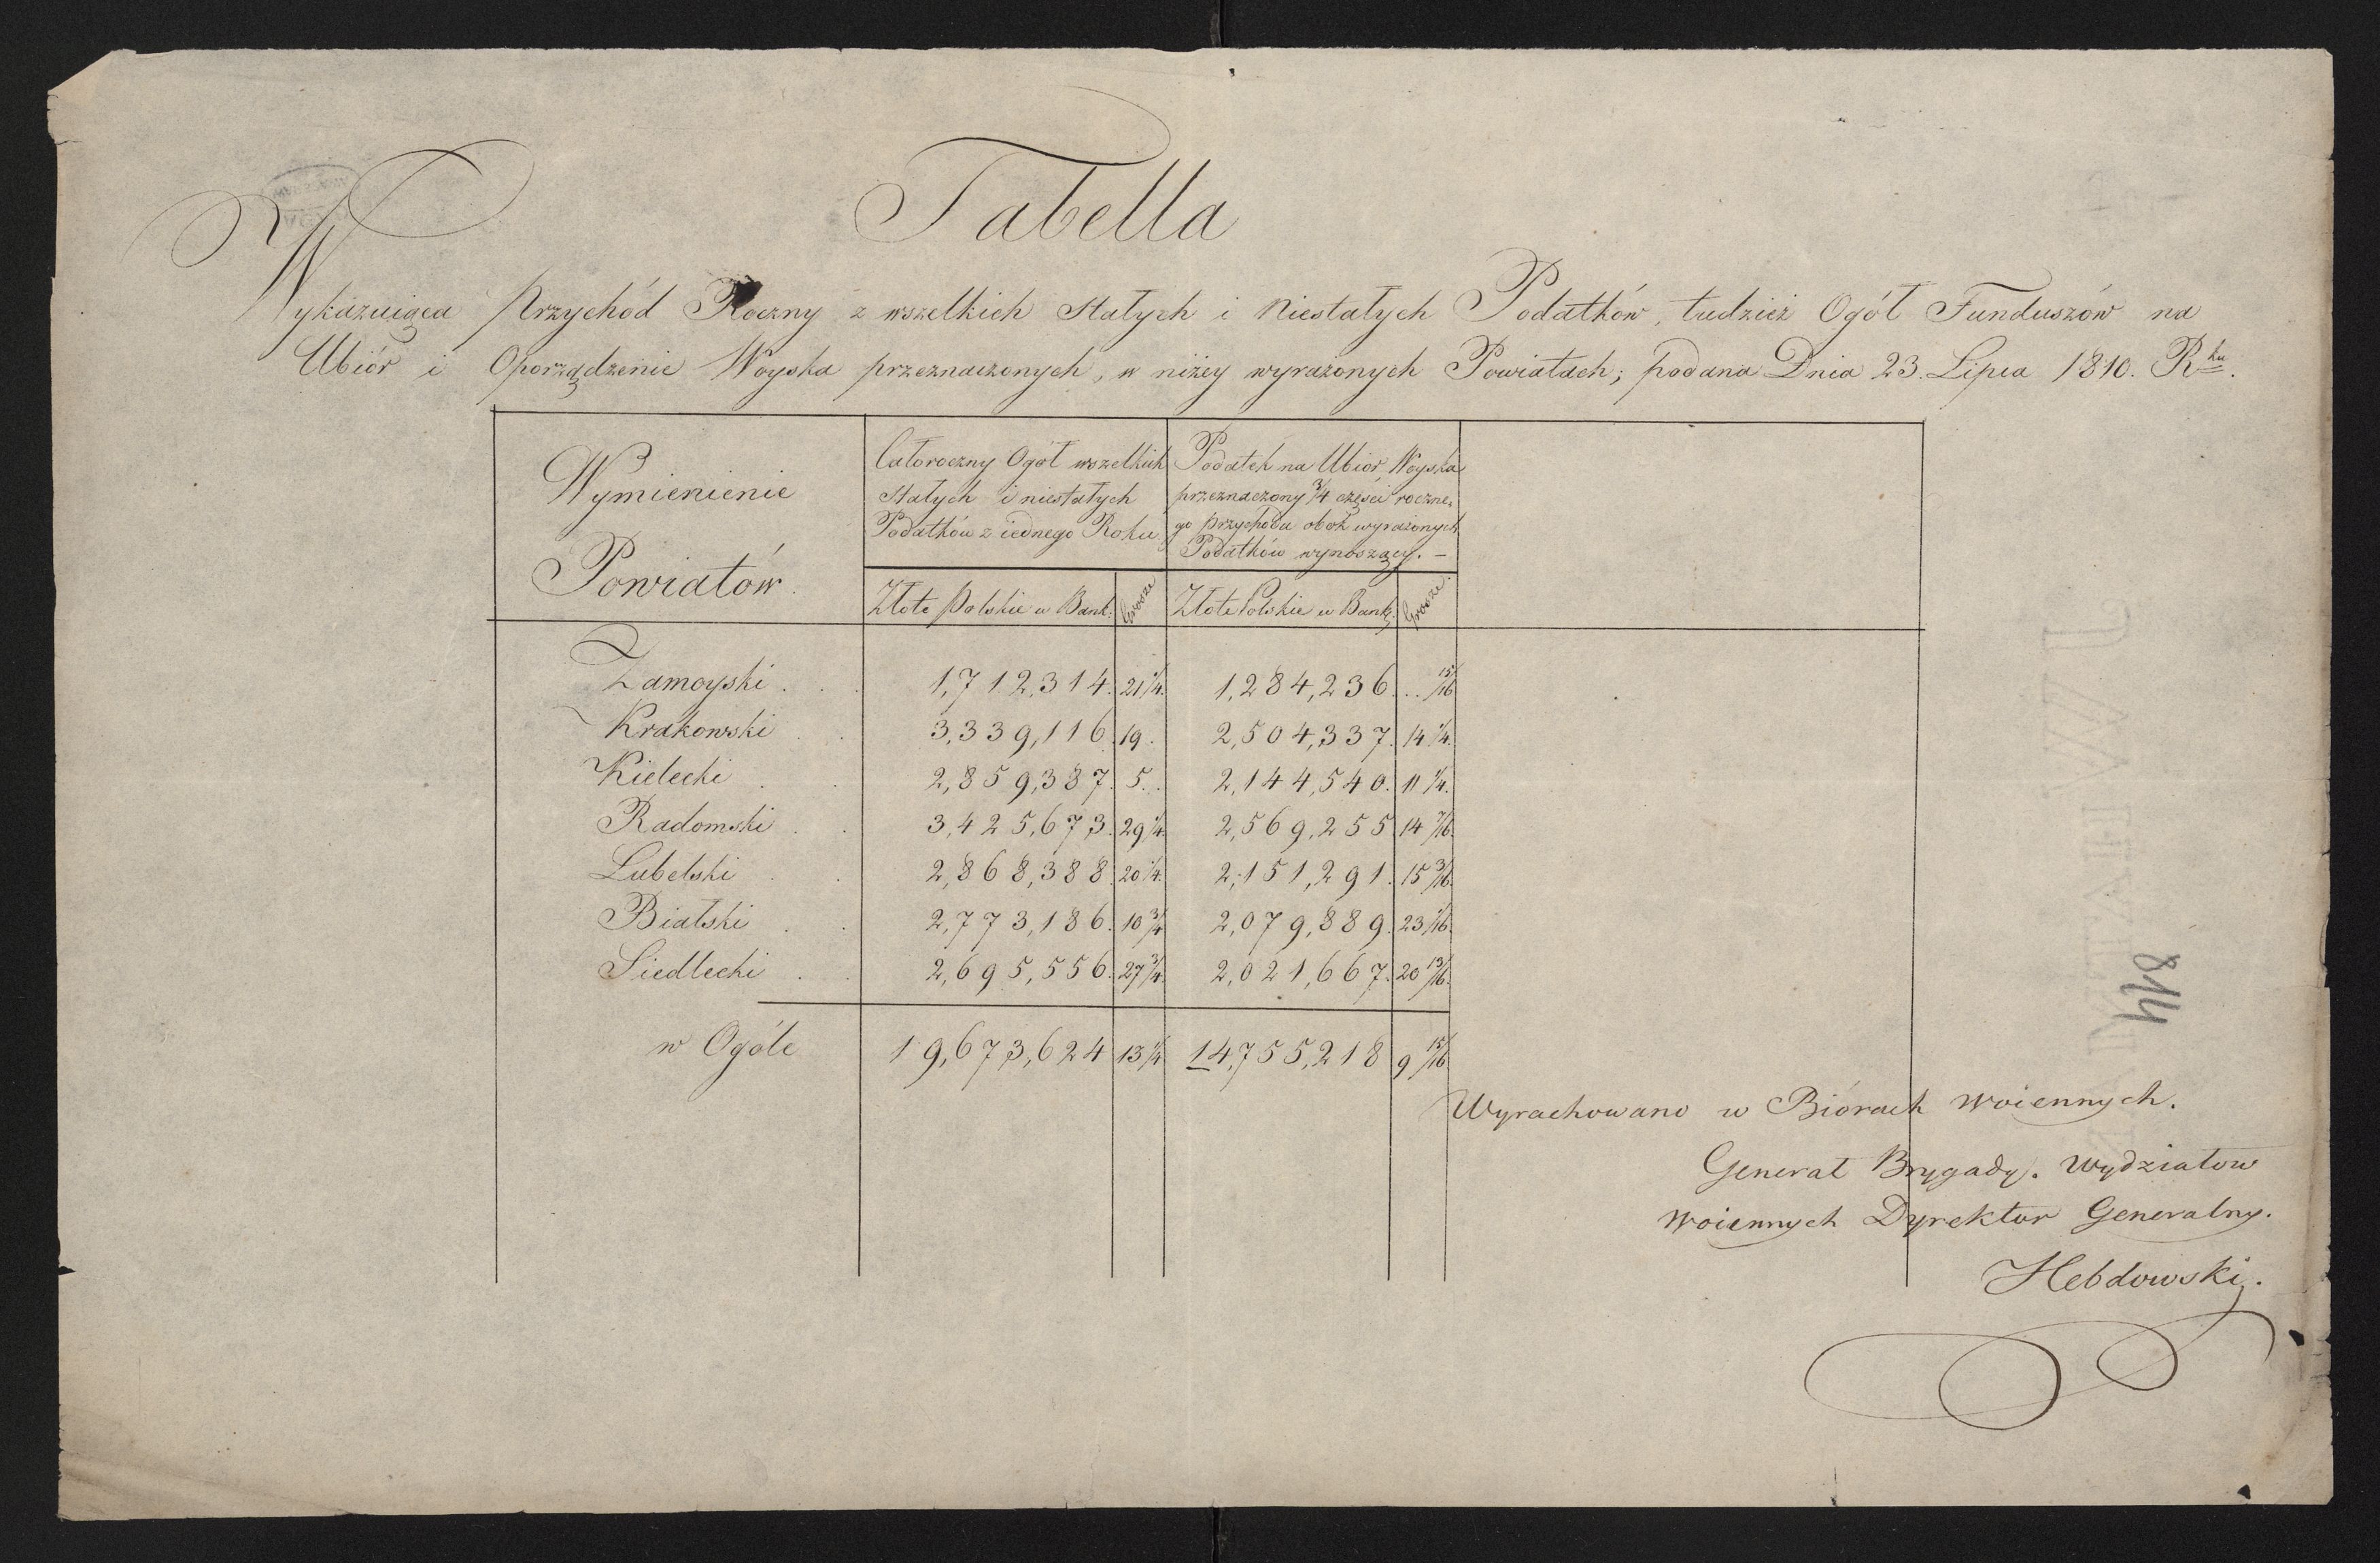 Tabella
Wykazuiąca Przychód Roczny z wszelkich Stałych i Niestałych Podatków, tudzież Ogół Funduszów na
Ubiór i Oporządzenie Woyska przeznaczonych, w niżey wyrażonych Powiatach; podana Dnia 23. Lipca 1810. Rku.
Wymienienie
Powiatów.
Całoroczny Ogół wszelkich
Stałych i niestałych
Podatków z iednego Roku
Podatek na Ubiór Woyska
przeznaczony 3/4 części roczne-
go przychodu obok wyrażonych
Podatków wynoszący. –
Złote Polskie w Bank: Grosze Złote Polskie w Bank: Grosze.
Zamoyski . . . 1,712,314. 21 1/4. 1,284,236. .. 15/16
Krakowski . . 3,339,116. 19. 2,504,337. 14 1/4.
Kielecki . . 2,859,387. 5.. 2,144,540. 11 1/4.
Radomski . . 3,425,673. 29 1/4. 2,569,255 14 7/16.
Lubelski . . 2,868,388. 20 1/4. 2,151,291. 15 3/16.
Bialski . . 2,773,186. 10 3/4 2,079,889. 23 1/16.
Siedlecki . . 2,695,556. 27 3/4. 2,021,667. 20 13/16.
w Ogóle 19,673,624 13 1/4 14,755,218 9 15/16
Wyrachowano w Biórach Woiennych.
Generał Brygady. Wydziałow
Woiennych Dyrektor Generalny.
Hebdowski.